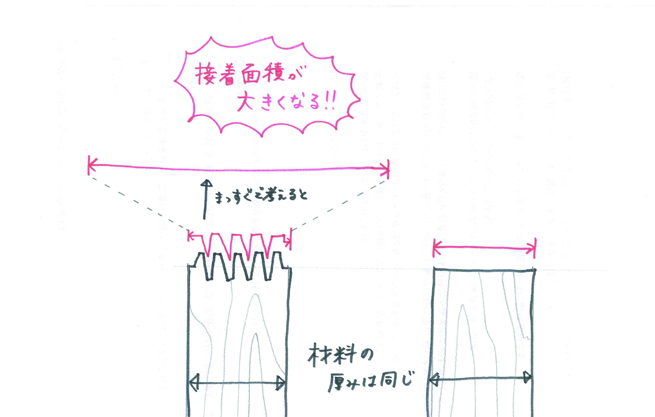 接着面積が
大きくなる!!
まっすぐで考えると
材料の
厚みは同じ